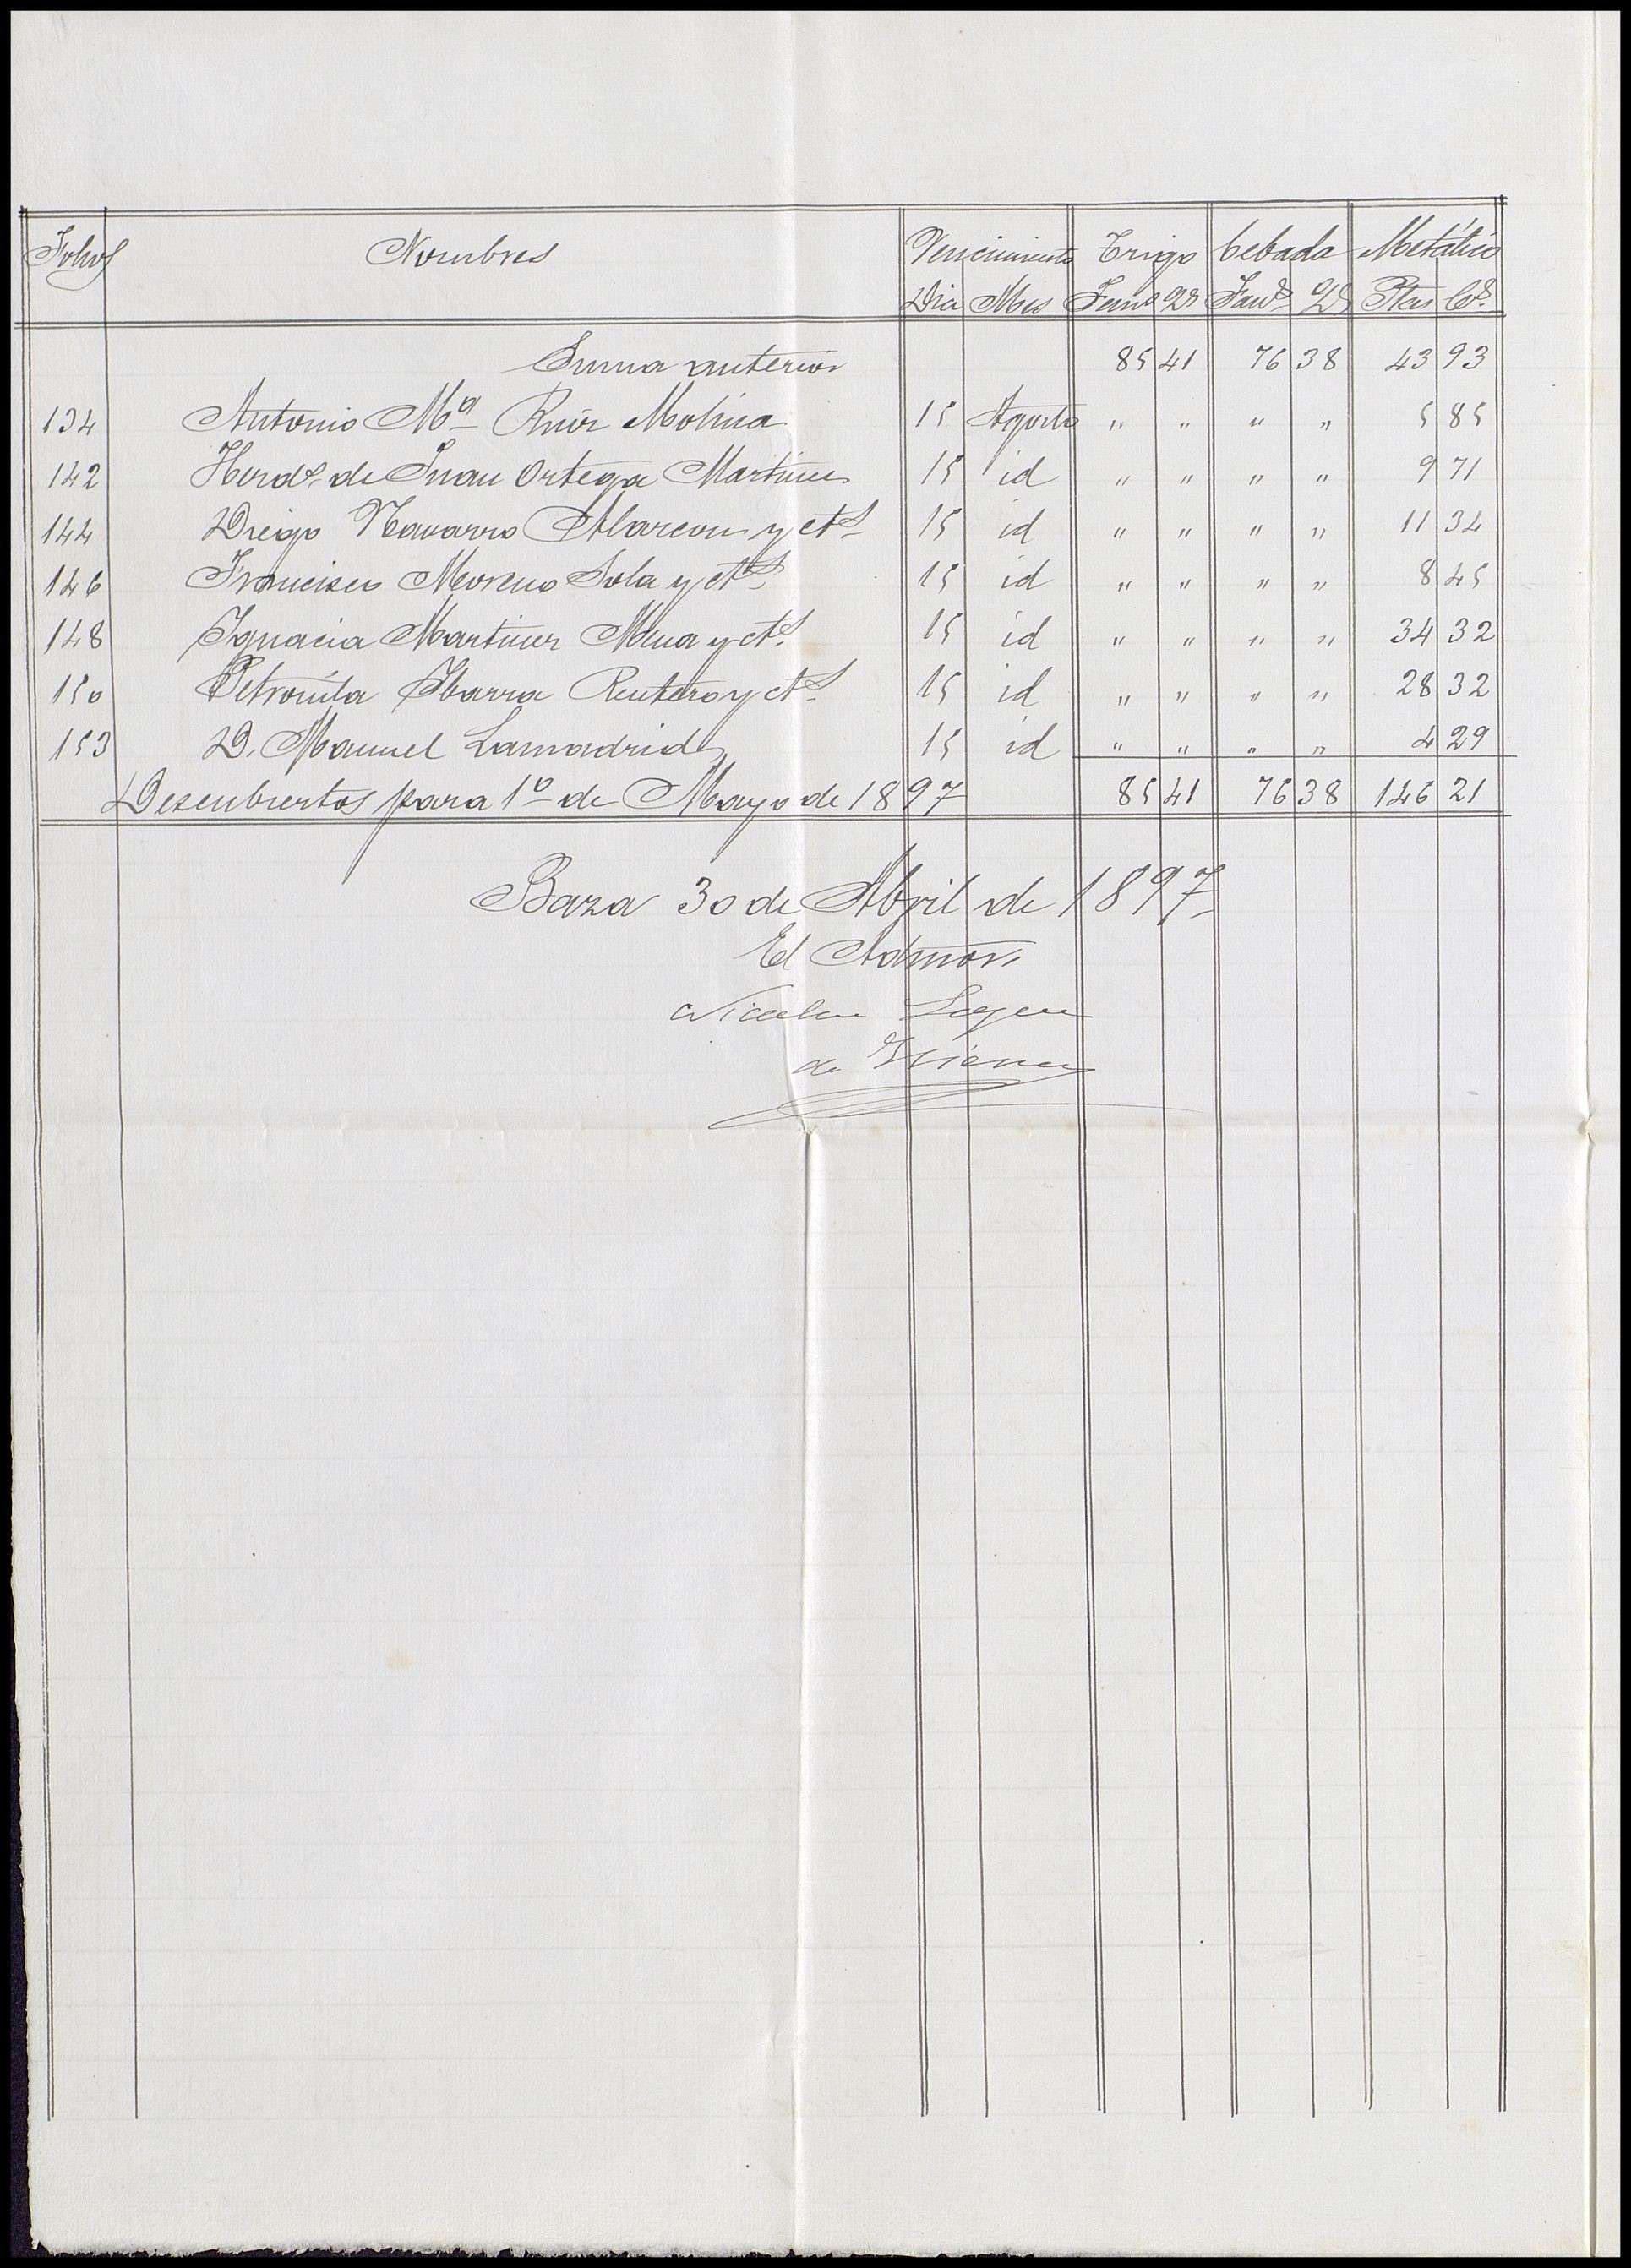 Folios Nombres Vencimiento Trigo Cebada Metálico
Dia Mes Fans Qs Fans Qs Ptas Cs
Suma anterior 85 41 76 38 43 93
134 Antonio Mª Ruiz Molina 15 Agosto " " " " 5 85
142 Herds de Juan Ortega Martinez 15 id " " " " 9 71
144 Diego Navarro Alarcon y cts 15 id " " " " 11 34
146 Francisco Moreno Sola y cts 15 id " " " " 8 45
148 Ignacia Martinez Mena y cts 15 id " " " " 34 32
150 Petronila Ybarra y cts 15 id " " " " 28 32
153 D. Manuel Lamadrid 15 id " " " " 4 29
Descubiertos para 1º de Mayo de 1897 85 41 76 38 146 21
Baza 30 de Abril de 1897
El Admor.
Nicolas
de